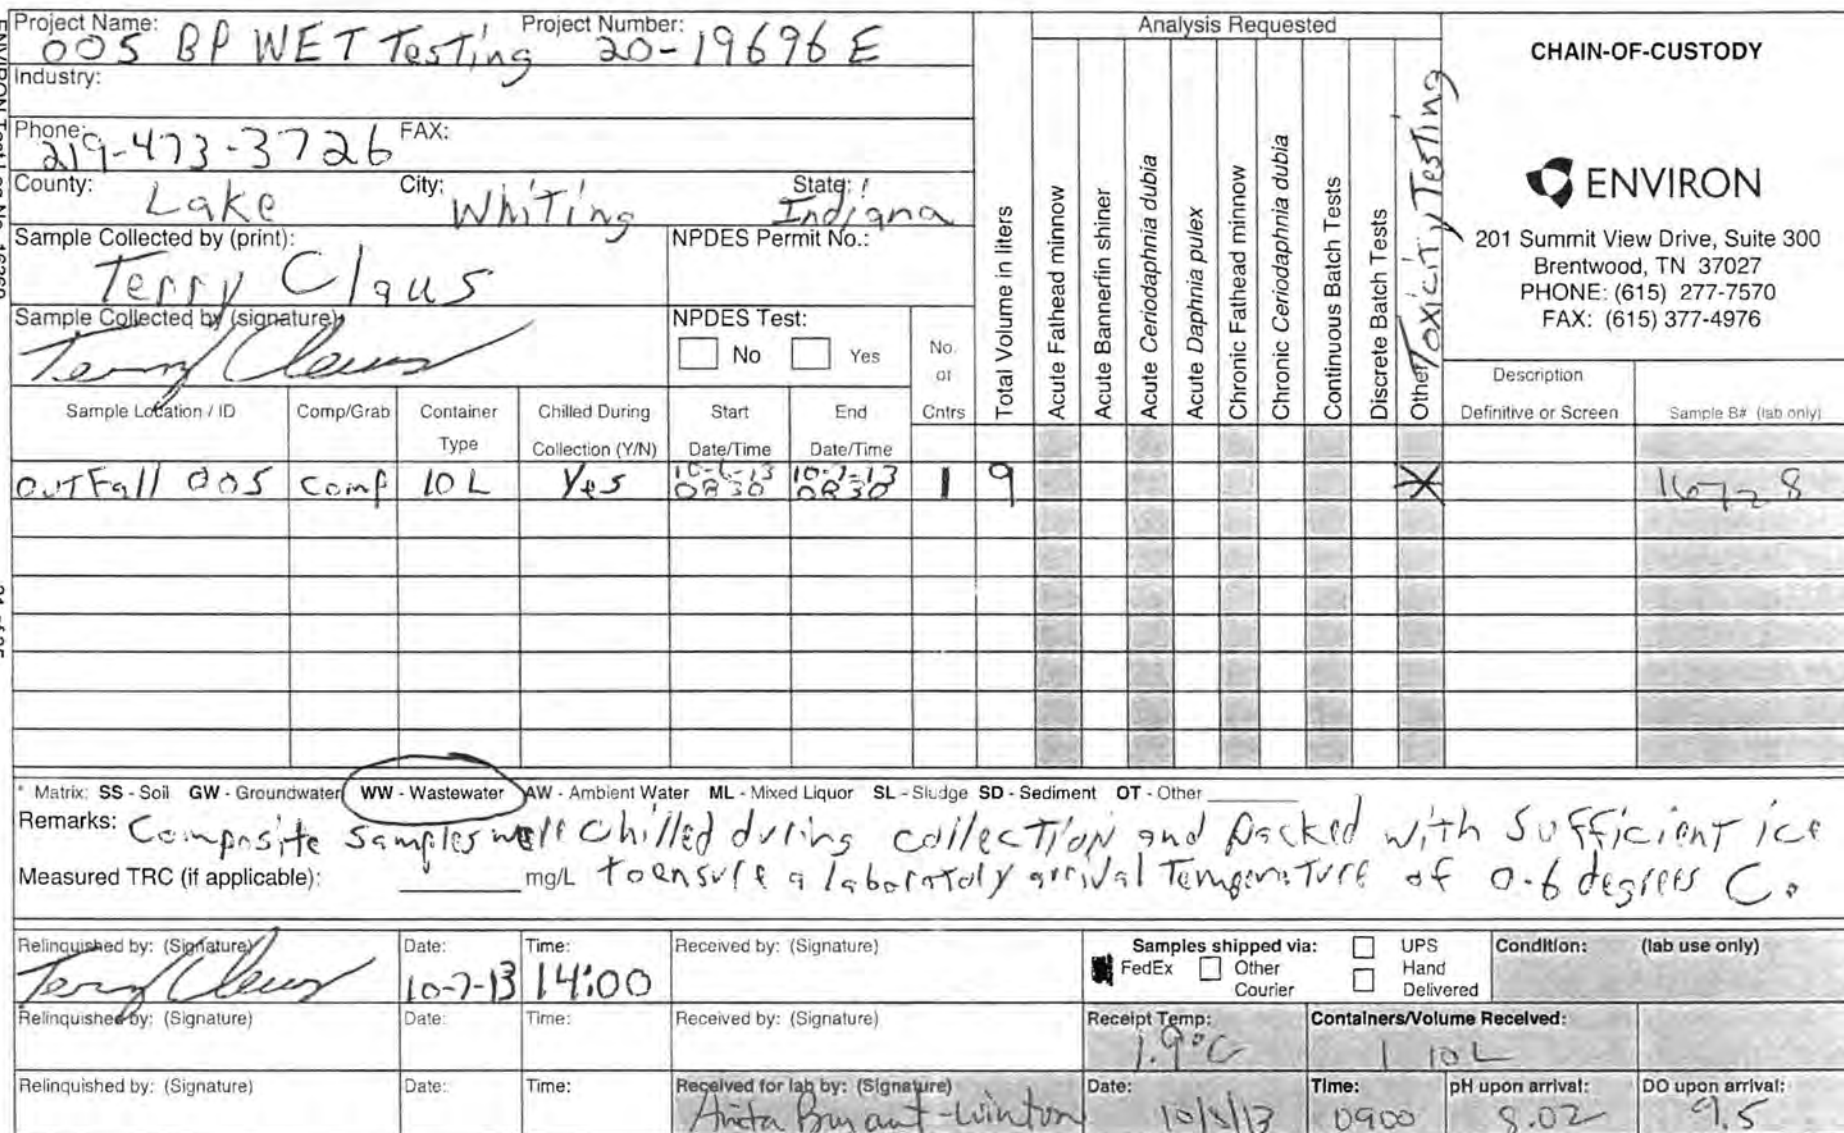 Project Name: 005 BP WET Testing Project Number: 20-19696 E
Industry:
Phone: 219-473-3726 FAX:
County: Lake City: Whiting State: Indiana
Sample Collected by (print): Terry Claus NPDES Permit No.:
Sample Collected by (signature): Terry Claus NPDES Test: No Yes
Analysis Requested
CHAIN-OF-CUSTODY
ENVIRON
201 Summit View Drive, Suite 300
Brentwood, TN 37027
PHONE: (615) 277-7570
FAX: (615) 377-4976
Sample Location / ID
Comp/Grab
Container Type
Chilled During Collection (Y/N)
Start Date/Time
End Date/Time
No. of Cntrs
Total Volume in liters
Acute Fathead minnow
Acute Bannerfin shiner
Acute Ceriodaphnia dubia
Acute Daphnia pulex
Chronic Fathead minnow
Chronic Ceriodaphnia dubia
Continuous Batch Tests
Discrete Batch Tests
Other Toxicity Testing
Description
Definitive or Screen
Sample B# (lab only)
OUTFall 005 Comp 10 L Yes 10-6-13 0830 10-7-13 0830 1 9 X 16728
* Matrix: SS - Soil GW - Groundwater WW - Wastewater AW - Ambient Water ML - Mixed Liquor SL - Sludge SD - Sediment OT - Other
Remarks: Composite samples were chilled during collection and packed with sufficient ice
Measured TRC (if applicable): mg/L to ensure a laboratory arrival Temperature of 0-6 degrees C.
Relinquished by: (Signature) Terry Claus Date: 10-7-13 Time: 14:00 Received by: (Signature)
Samples shipped via: UPS
FedEx Other Courier Hand Delivered
Condition: (lab use only)
Relinquished by: (Signature) Date: Time: Received by: (Signature) Receipt Temp: 1.9°C Containers/Volume Received: 1 10 L
Relinquished by: (Signature) Date: Time: Received for lab by: (Signature) Anita Bryant-Winton Date: 10/8/13 Time: 0900 pH upon arrival: 8.02 DO upon arrival: 9.5